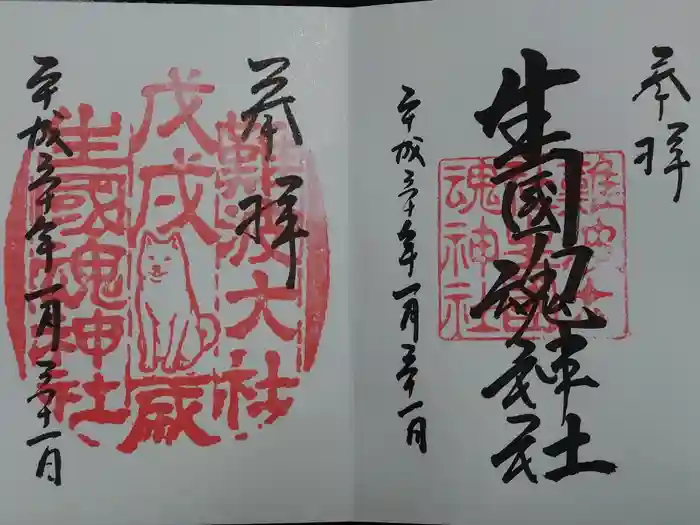 奉拝
難波大
社生國
魂神社
生國魂神社
平成三十年一月三十一日
奉拝
難波大社
戊戌歳
生國魂神社
平成三十年一月三十一日